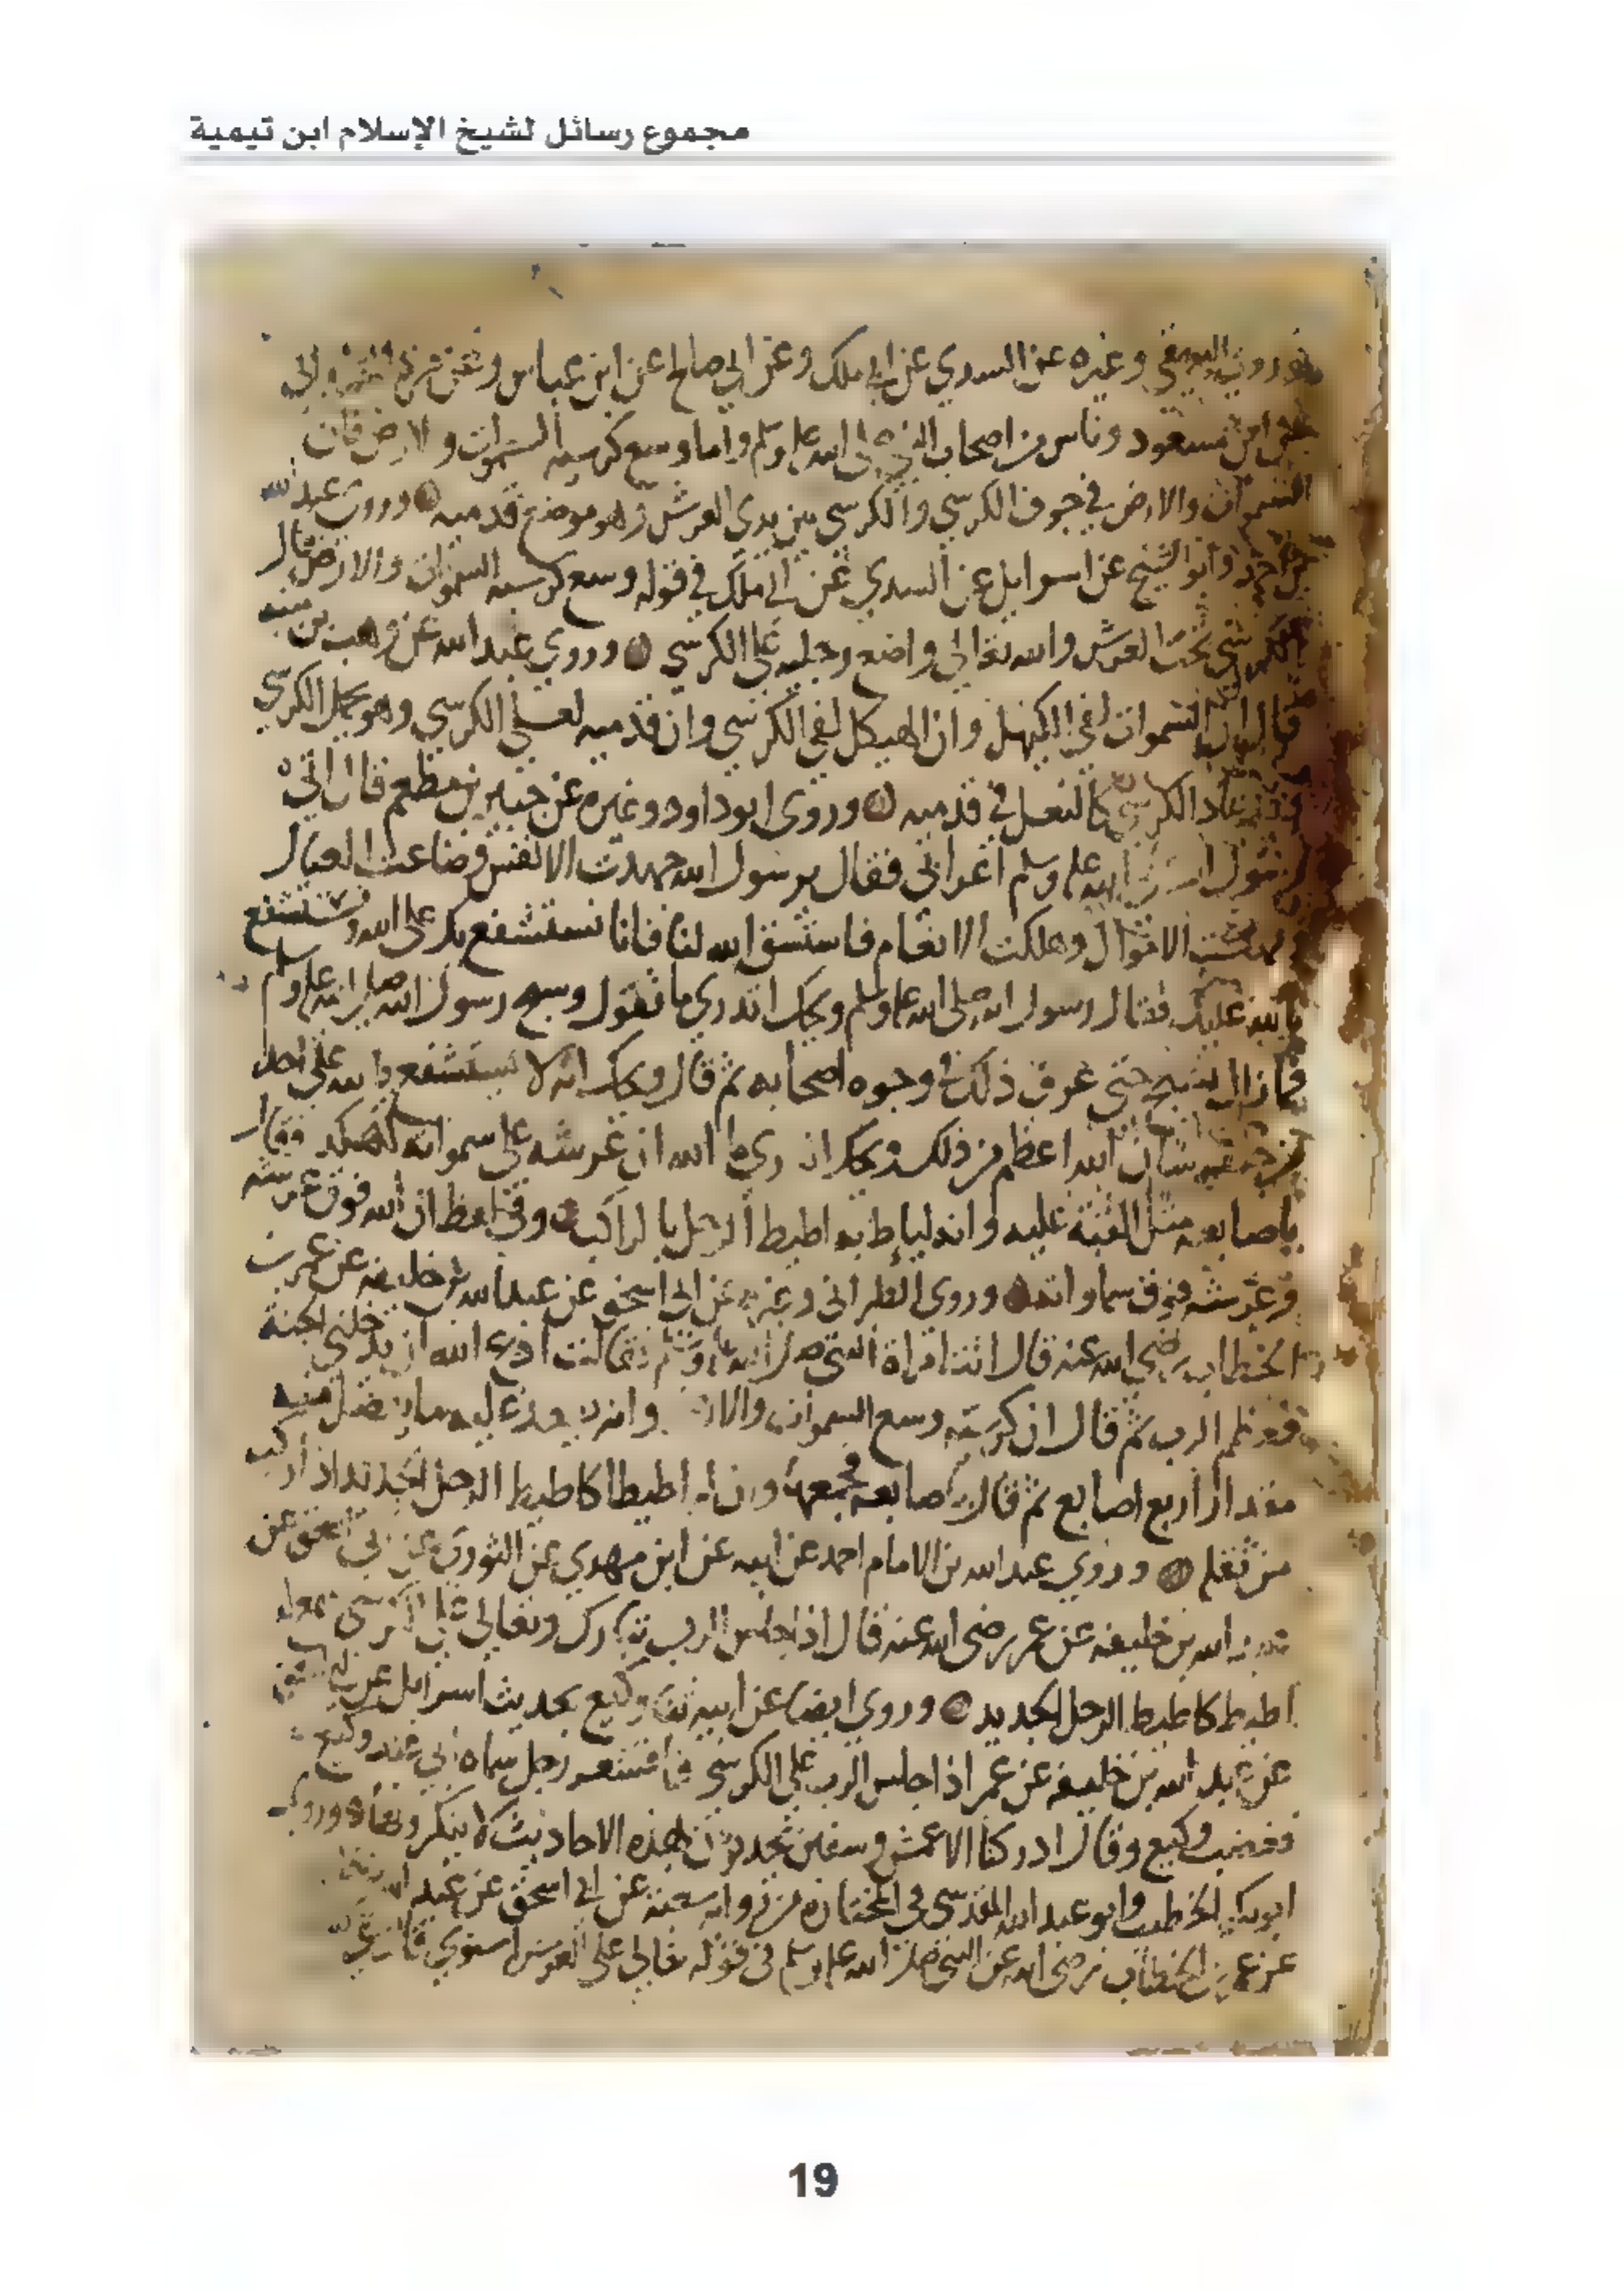 مجموع رسائل لشيخ الإسلام ابن تيمية
وغيره عن السدي عن ابي ملك وعن ابي صالح عن ابن عباس وعن مرة
ابن مسعود وناس من اصحاب النبي صلى الله عليه وسلم واما وسع كرسيه السموات والارض فان
السموات والارض في جوف الكرسي والكرسي بين يدي العرش وهو موضع قدميه وروى عبد الله
وابو الشيخ عن اسرايل عن السدي عن ابي ملك في قوله وسع كرسيه السموات والارض قال
تحت العرش والله تعالى واضع رجليه على الكرسي وروي عبد الله عن وهب بن منبه
قال ان السموات لفي الهيكل وان الهيكل لفي الكرسي وان قدميه لعلى الكرسي وهو يحمل الكرسي
وقد عاد الكرسي كالنعل في قدميه وروى ابو داود وغيره عن جبير بن مطعم قال اتى
رسول الله صلى الله عليه وسلم اعرابي فقال يرسول الله جهدت الانفس وضاعت العيال
الاموال وهلكت الانعام فاستسق الله لنا فانا نستشفع بك على الله ونستشفع
بالله عليك فقال رسول الله صلى الله عليه وسلم ويحك اتدري ما تقول وسبح رسول الله صلى الله عليه وسلم
فما زال يسبح حتى عرف ذلك في وجوه اصحابه ثم قال ويحك انه لا يستشفع بالله على احد
من خلقه شان الله اعظم من ذلك ويحك اتدري ما الله ان عرشه على سمواته لهكذا وقال
باصابعه مثل القبة عليه وانه ليأط به اطيط الرحل بالراكب وفي لفظ ان الله فوق عرشه
وعرشه فوق سماواته وروى الطبراني وغيره عن ابي اسحق عن عبد الله بن خليفه عن عمر بن
الخطاب رضي الله عنه قال اتت امراة النبي صلى الله عليه وسلم فقالت ادع الله ان يدخلني الجنة
فعظم الرب ثم قال ان كرسيه وسع السموات والارض وانه ليقعد عليه ما يفضل منه
مقدار اربع اصابع ثم قال باصابعه فجمعها وان له اطيطا كاطيط الرحل الجديد اذا ركب
من ثقله وروي عبد الله بن الامام احمد عن ابيه عن ابن مهدي عن الثوري عن ابي اسحق عن
عبد الله بن خليفه عن عمر رضي الله عنه قال اذا جلس الرب تبارك وتعالى على الكرسي سمع له
اطيط كاطيط الرحل الجديد وروي ايضا عن ابيه ثنا وكيع بحديث اسرايل عن ابي اسحق
عن عبد الله بن خليفه عن عمر اذا جلس الرب على الكرسي فاقشعر رجل سماه ابي عند وكيع
فغضب وكيع وقال ادركنا الاعمش وسفين يحدثون بهذه الاحاديث لا ينكرونها وروى
ابو بكر الخطيب وابو عبد الله المقدسي في المختارة من رواية شعبة عن ابي اسحق عن عبد الله
عن عمر بن الخطاب رضي الله عن النبي صلى الله عليه وسلم في قوله تعالى على العرش استوي
19